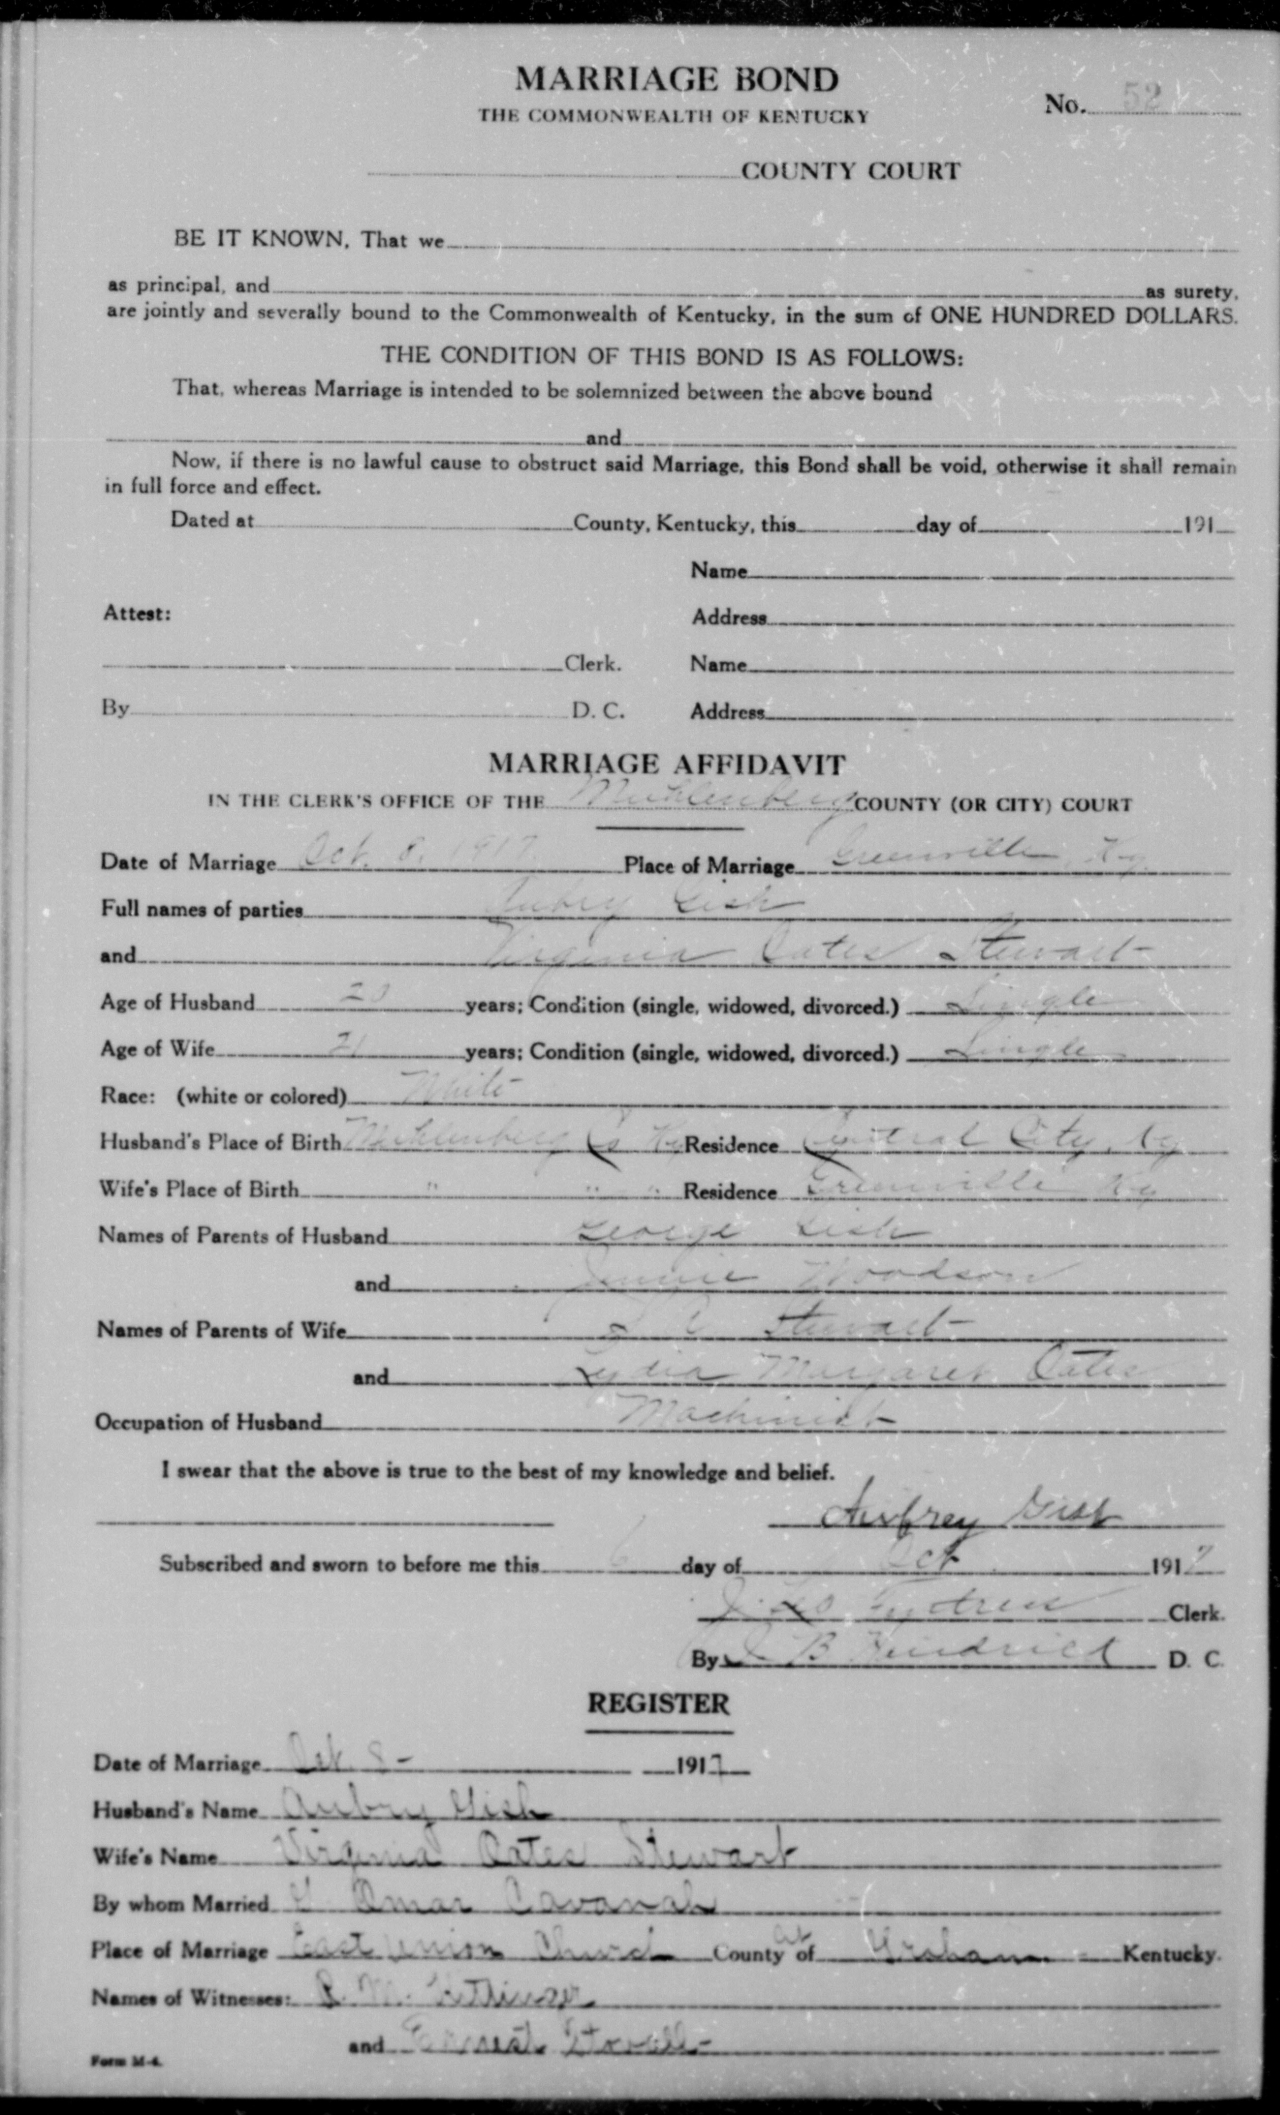 MARRIAGE BOND
THE COMMONWEALTH OF KENTUCKY
No. 52
COUNTY COURT
BE IT KNOWN, That we
as principal, and as surety,
are jointly and severally bound to the Commonwealth of Kentucky, in the sum of ONE HUNDRED DOLLARS.
THE CONDITION OF THIS BOND IS AS FOLLOWS:
That, whereas Marriage is intended to be solemnized between the above bound
and
Now, if there is no lawful cause to obstruct said Marriage, this Bond shall be void, otherwise it shall remain
in full force and effect.
Dated at County, Kentucky, this day of 191
Name
Attest: Address
Clerk. Name
By D. C. Address
MARRIAGE AFFIDAVIT
IN THE CLERK'S OFFICE OF THE Muhlenberg COUNTY (OR CITY) COURT
Date of Marriage Oct. 8, 1917 Place of Marriage Greenville Ky.
Full names of parties Aubry Gish
and Virginia Oates Stewart
Age of Husband 23 years; Condition (single, widowed, divorced.) Single
Age of Wife 21 years; Condition (single, widowed, divorced.) Single
Race: (white or colored) White
Husband's Place of Birth Muhlenberg Co Ky Residence Central City, Ky
Wife's Place of Birth " " " Residence Greenville Ky
Names of Parents of Husband George Gish
and Jennie Woodson
Names of Parents of Wife Stewart
and Lydia Margaret Oates
Occupation of Husband Machinist
I swear that the above is true to the best of my knowledge and belief.
Aubrey Gish
Subscribed and sworn to before me this 6 day of Oct 1917
Clerk.
By B D. C.
REGISTER
Date of Marriage Oct 8 - 1917
Husband's Name Aubry Gish
Wife's Name Virginia Oates Stewart
By whom Married Omar Cavanah
Place of Marriage East Union Church County at of Graham - Kentucky.
Names of Witnesses: R. M.
and Earnest
Form M-4.